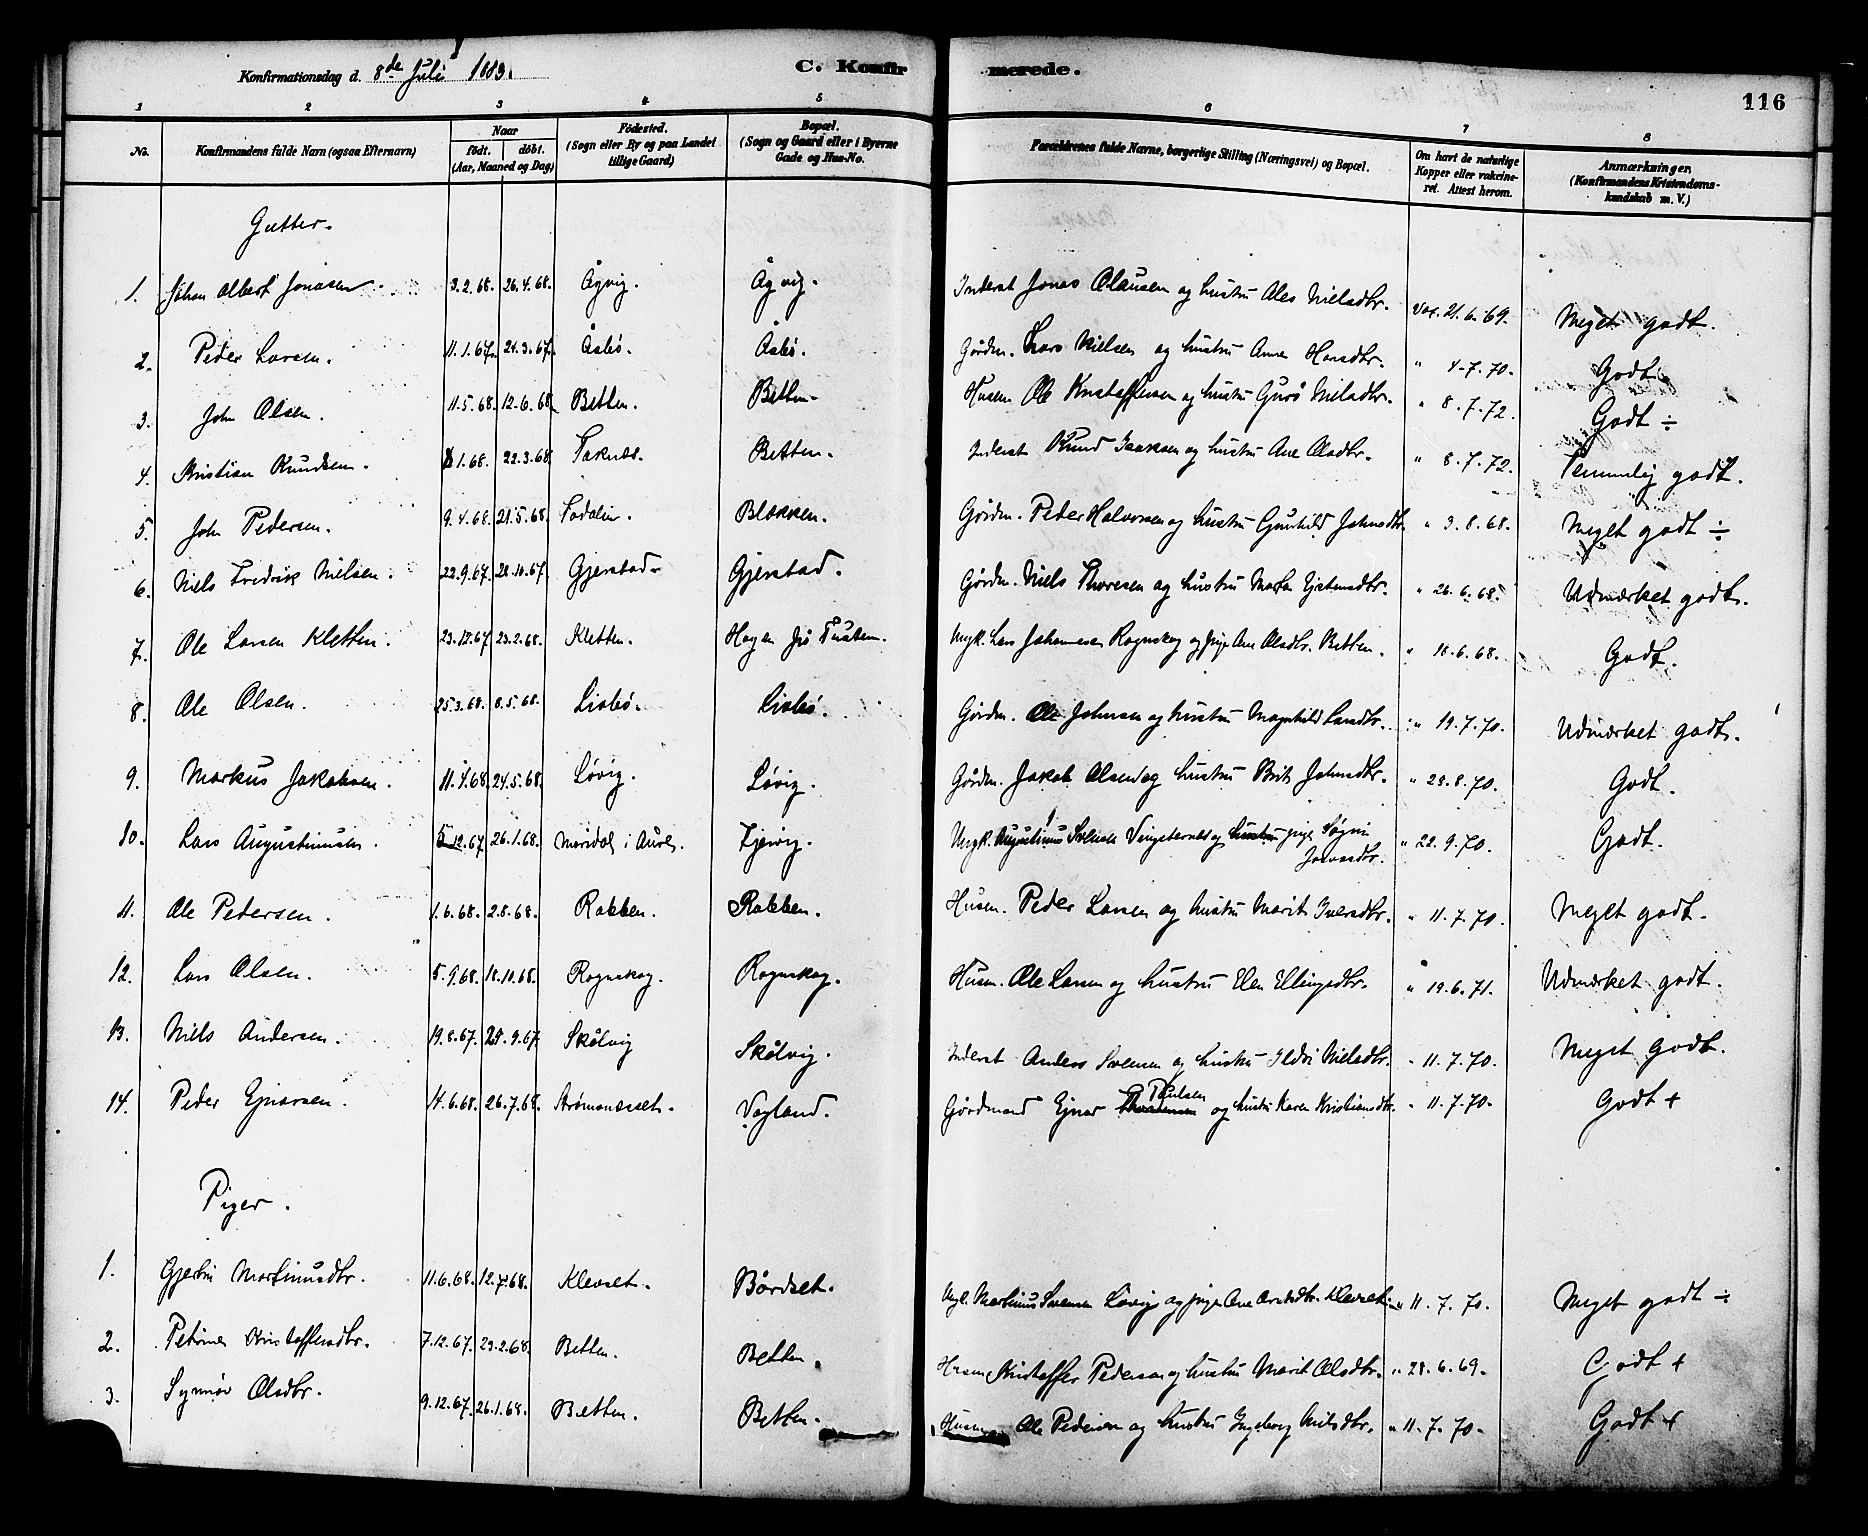 Konfirmationsdag d. 8de Juli 1883.
C. Konfirmerede.
116
1 2 3 4 5 6 7 8
No. Konfirmandens fulde Navn (ogsaa Efternavn) Naar født. døbt. (Aar, Maaned og Dag) Fødested. (Sogn eller By og paa Landet tillige Gaard) Bopæl. (Sogn og Gaard eller i Byerne Gade og Hus-No. Forældrenes fulde Navne, borgerlige Stilling (Næringsvei) og Bopæl. Om havt de naturlige Kopper eller vakcineret. Attest herom. Anmærkninger. (Konfirmandens Kristendomskundskab m. V.)
Gutter.
1. Johan Albert Jonasen. 3.2.68. 26.4.68. Ågvig. Ågvig. Inderst Jonas Olausen og hustru Ales Nielsdtr. Vac. 21.6.69. Meget godt.
2. Peder Larsen. 11.1.67. 24.3.67. Åsbø. Åsbø. Gårdm. Lars Nielsen og hustru Anne Hansdtr. " 4.7.70. Godt.
3. John Olsen. 11.5.68. 12.6.68. Betten. Betten. Husm. Ole Kristoffersen og hustru Gurò Nielsdtr. " 8.7.72. Godt ÷
4. Kristian Knudsen. 1.68. 22.3.68. Taknes. Betten. Inderst Knud Isaksen og hustru Ane Olsdtr. " 8.7.72. Temmelig godt.
5. John Pedersen. 9.4.68. 21.5.68. Todalen. Blekken. Gårdm. Peder Halvorsen og hustru Gunhild Johnsdtr. " 3.8.68. Meget godt ÷
6. Niels Fredrik Nielsen. 22.9.67. 28.10.67. Gjerstad. Gjerstad. Gårdm. Niels Thoresen og hustru Marta Ejstensdtr. " 26.6.68. Udmærket godt.
7. Ole Larsen Kletten. 23.12.67 23.2.68. Kletten. Hagen på Tusten. Ungk. Lars Johannesen Rognskog og pige Ane Olsdtr. Betten. " 18.6.68. Godt.
8. Ole Olsen. 25.3.68. 8.5.68. Lisbø. Lisbø. Gårdm. Ole Johnsen og hustru Magnhild Larsdtr. " 19.7.70. Udmærket godt.
9. Markus Jakobsen. 11.4.68. 24.5.68. Løvig. Løvig. Gårdm. Jakob Olsen og hustru Brit Johnsdtr. " 23.8.70. Godt.
10. Lars Augustinusen. 5.12.67. 26.1.68. Meridal i Aure. Ejevig. Ungk. Augustinus Svendsen og hustru pige Søgni Jonasdtr. " 22.9.70. Godt.
11. Ole Pedersen. 1.6.68. 2.8.68. Rabben. Rabben. Husm. Peder Larsen og hustru Marit Iversdtr. " 11.7.70. Meget godt.
12. Lars Olsen. 5.9.68. 18.10.68. Rognskog. Rognskog. Husm. Ole Larsen og hustru Elen Ellingsdtr. " 19.6.71. Udmærket godt.
13. Niels Andersen. 19.8.67. 29.9.67 Skålvig Skålvig. Inderst Anders Svensen og hustru Ildri Nielsdtr. " 11.7.70. Meget godt.
14. Peder Ejnarsen. 14.6.68. 26.7.68. Strømsnesset. Vagland. Gårdmand Ejnar Paulsen og hustru Karen Kristiansdtr. " 11.7.70. Godt +
Piger.
1. Gjertru Martinusdtr. 11.6.68. 12.7.68. Klevset. Bårdset. Ungk. Martinus Svensen Løvig og pige Ane Arntsdtr. Klevset. " 11.7.70. Meget godt ÷
2. Petrine Kristoffersdtr. 7.12.67. 23.2.68. Betten. Betten. Husm. Kristoffer Pedersen og hustru Marit Olsdtr. " 28.6.69. Godt +
3. Synnøv Olsdtr. 9.12.67. 26.1.68. Betten. Betten. Husm. Ole Pedersen og hustru Ingeborg Nilsdtr. " 11.7.70. Godt +